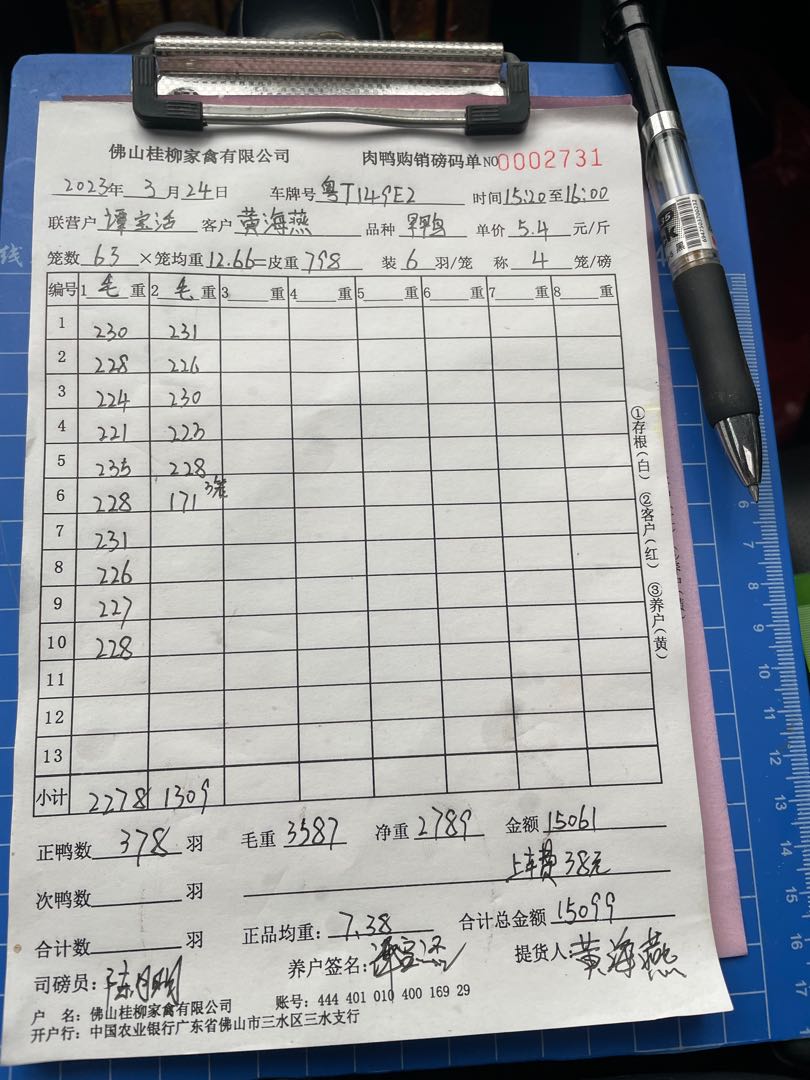 佛山桂柳家禽有限公司 肉鸭购销磅码单 NO 0002731
2023年 3月24日 车牌号 粤T149E2 时间15:20至16:00
联营户 谭宝活 客户 黄海燕 品种 旱鸭 单价 5.4 元/斤
笼数 63 ×笼均重12.66=皮重 798 装 6 羽/笼 称 4 笼/磅
编号 1 毛 重 2 毛 重 3 重 4 重 5 重 6 重 7 重 8 重
1 230 231
2 228 226
3 224 230
4 221 223
5 235 228
6 228 171 3笼
7 231
8 226
9 227
10 228
11
12
13
小计 2278 1309
正鸭数 378 羽 毛重 3587 净重 2789 金额 15061
次鸭数 羽 上车费38元
合计数 羽 正品均重: 7.38 合计总金额 15099
司磅员: 养户签名: 谭宝活 提货人: 黄海燕
户 名: 佛山桂柳家禽有限公司 账号: 444 401 010 400 169 29
开户行: 中国农业银行广东省佛山市三水区三水支行
①存根(白) ②客户(红) ③养户(黄)
6
7
8
9
10
11
12
13
14
15
16
17